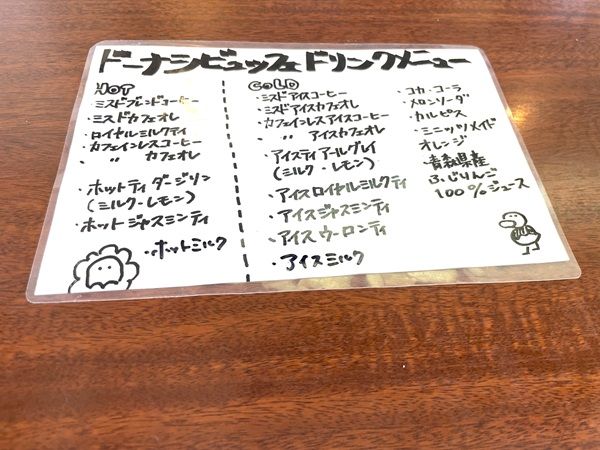 ドーナツビュッフェドリンクメニュー
HOT
・ミスドブレンドコーヒー
・ミスドカフェオレ
・ロイヤルミルクティ
・カフェインレスコーヒー
・ 〃 カフェオレ
・ホットティダージリン
(ミルク・レモン)
・ホットジャスミンティ
・ホットミルク
COLD
・ミスドアイスコーヒー
・ミスドアイスカフェオレ
・カフェインレスアイスコーヒー
・ 〃 アイスカフェオレ
・アイスティアールグレイ
(ミルク・レモン)
・アイスロイヤルミルクティ
・アイスジャスミンティ
・アイスウーロンティ
・アイスミルク
・コカ・コーラ
・メロンソーダ
・カルピス
・ミニッツメイド
オレンジ
・青森県産
ふじりんご
100%ジュース